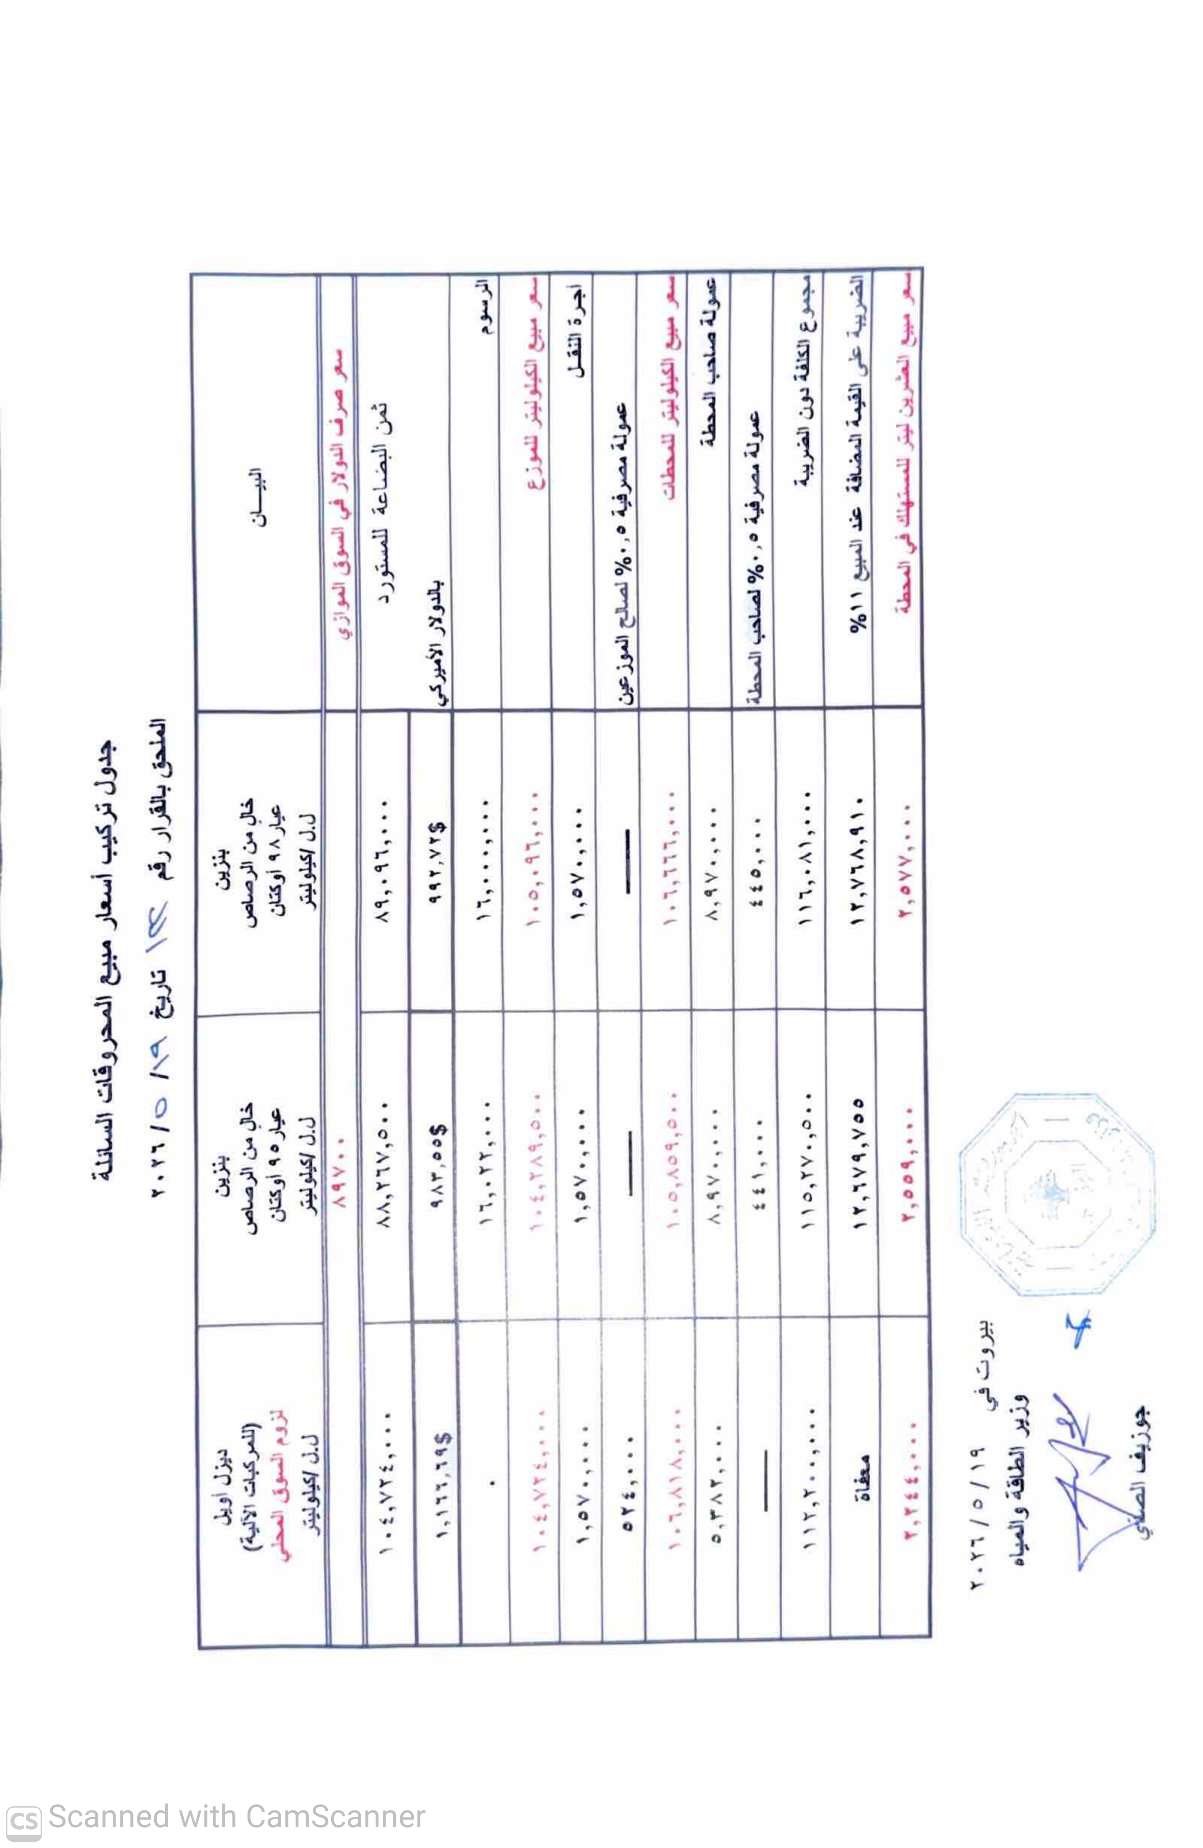 جدول تركيب أسعار مبيع المحروقات السائلة
الملحق بالقرار رقم تاريخ ١٩/ ٥/ ٢٠٢٦
البيـــان
بنزين
خال من الرصاص
عيار ٩٨ أوكتان
ل.ل/كيلوليتر
بنزين
خال من الرصاص
عيار ٩٥ أوكتان
ل.ل/كيلوليتر
ديزل أويل
(للمركبات الآلية)
لزوم السوق المحلي
ل.ل/كيلوليتر
سعر صرف الدولار في السوق الموازي ٨٩٧٠٠
ثمن البضاعة للمستورد ٨٩,٠٩٦,٠٠٠ ٨٨,٢٦٧,٥٠٠ ١٠٤,٧٢٤,٠٠٠
بالدولار الأميركي ٩٩٢,٧٢$ ٩٨٣,٥٥$ ١,١٦٦,٦٩$
الرسوم ١٦,٠٠٠,٠٠٠ ١٦,٠٢٢,٠٠٠ ٠
سعر مبيع الكيلوليتر للموزع ١٠٥,٠٩٦,٠٠٠ ١٠٤,٢٨٩,٥٠٠ ١٠٤,٧٢٤,٠٠٠
أجرة النقل ١,٥٧٠,٠٠٠ ١,٥٧٠,٠٠٠ ١,٥٧٠,٠٠٠
عمولة مصرفية ٠,٥% لصالح الموزعين — — ٥٢٤,٠٠٠
سعر مبيع الكيلوليتر للمحطات ١٠٦,٦٦٦,٠٠٠ ١٠٥,٨٥٩,٥٠٠ ١٠٦,٨١٨,٠٠٠
عمولة صاحب المحطة ٨,٩٧٠,٠٠٠ ٨,٩٧٠,٠٠٠ ٥,٣٨٢,٠٠٠
عمولة مصرفية ٠,٥% لصاحب المحطة ٤٤٥,٠٠٠ ٤٤١,٠٠٠ —
مجموع الكلفة دون الضريبة ١١٦,٠٨١,٠٠٠ ١١٥,٢٧٠,٥٠٠ ١١٢,٢٠٠,٠٠٠
الضريبة على القيمة المضافة عند المبيع ١١% ١٢,٧٦٨,٩١٠ ١٢,٦٧٩,٧٥٥ معفاة
سعر مبيع العشرين ليتر للمستهلك في المحطة ٢,٥٧٧,٠٠٠ ٢,٥٥٩,٠٠٠ ٢,٢٤٤,٠٠٠
بيروت في ١٩/ ٥/ ٢٠٢٦
وزير الطاقة والمياه
جوزيف الصدّي
CS Scanned with CamScanner